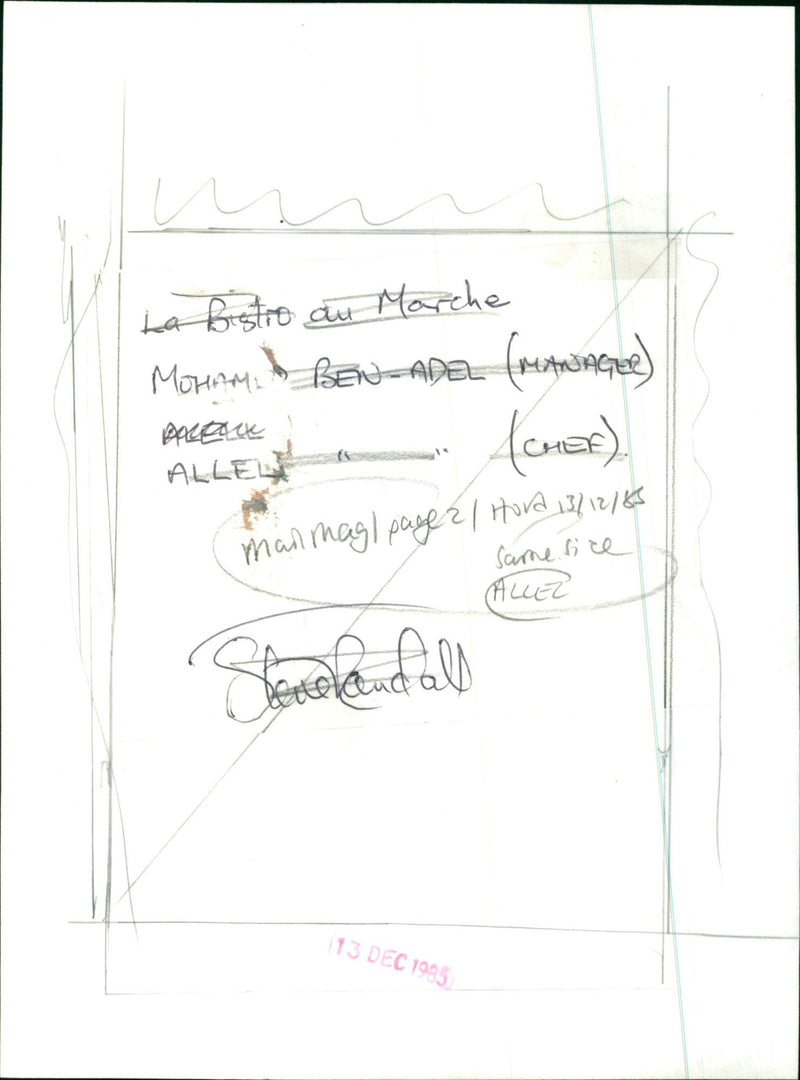 La Bistro au Marche
MOHAM BEN-ADEL (MANAGER)
ALLEL " " (CHEF).
Mail mag/ page 2/ 13/12/85
Same size
ALLEZ
Steve Randall
13 DEC 1985